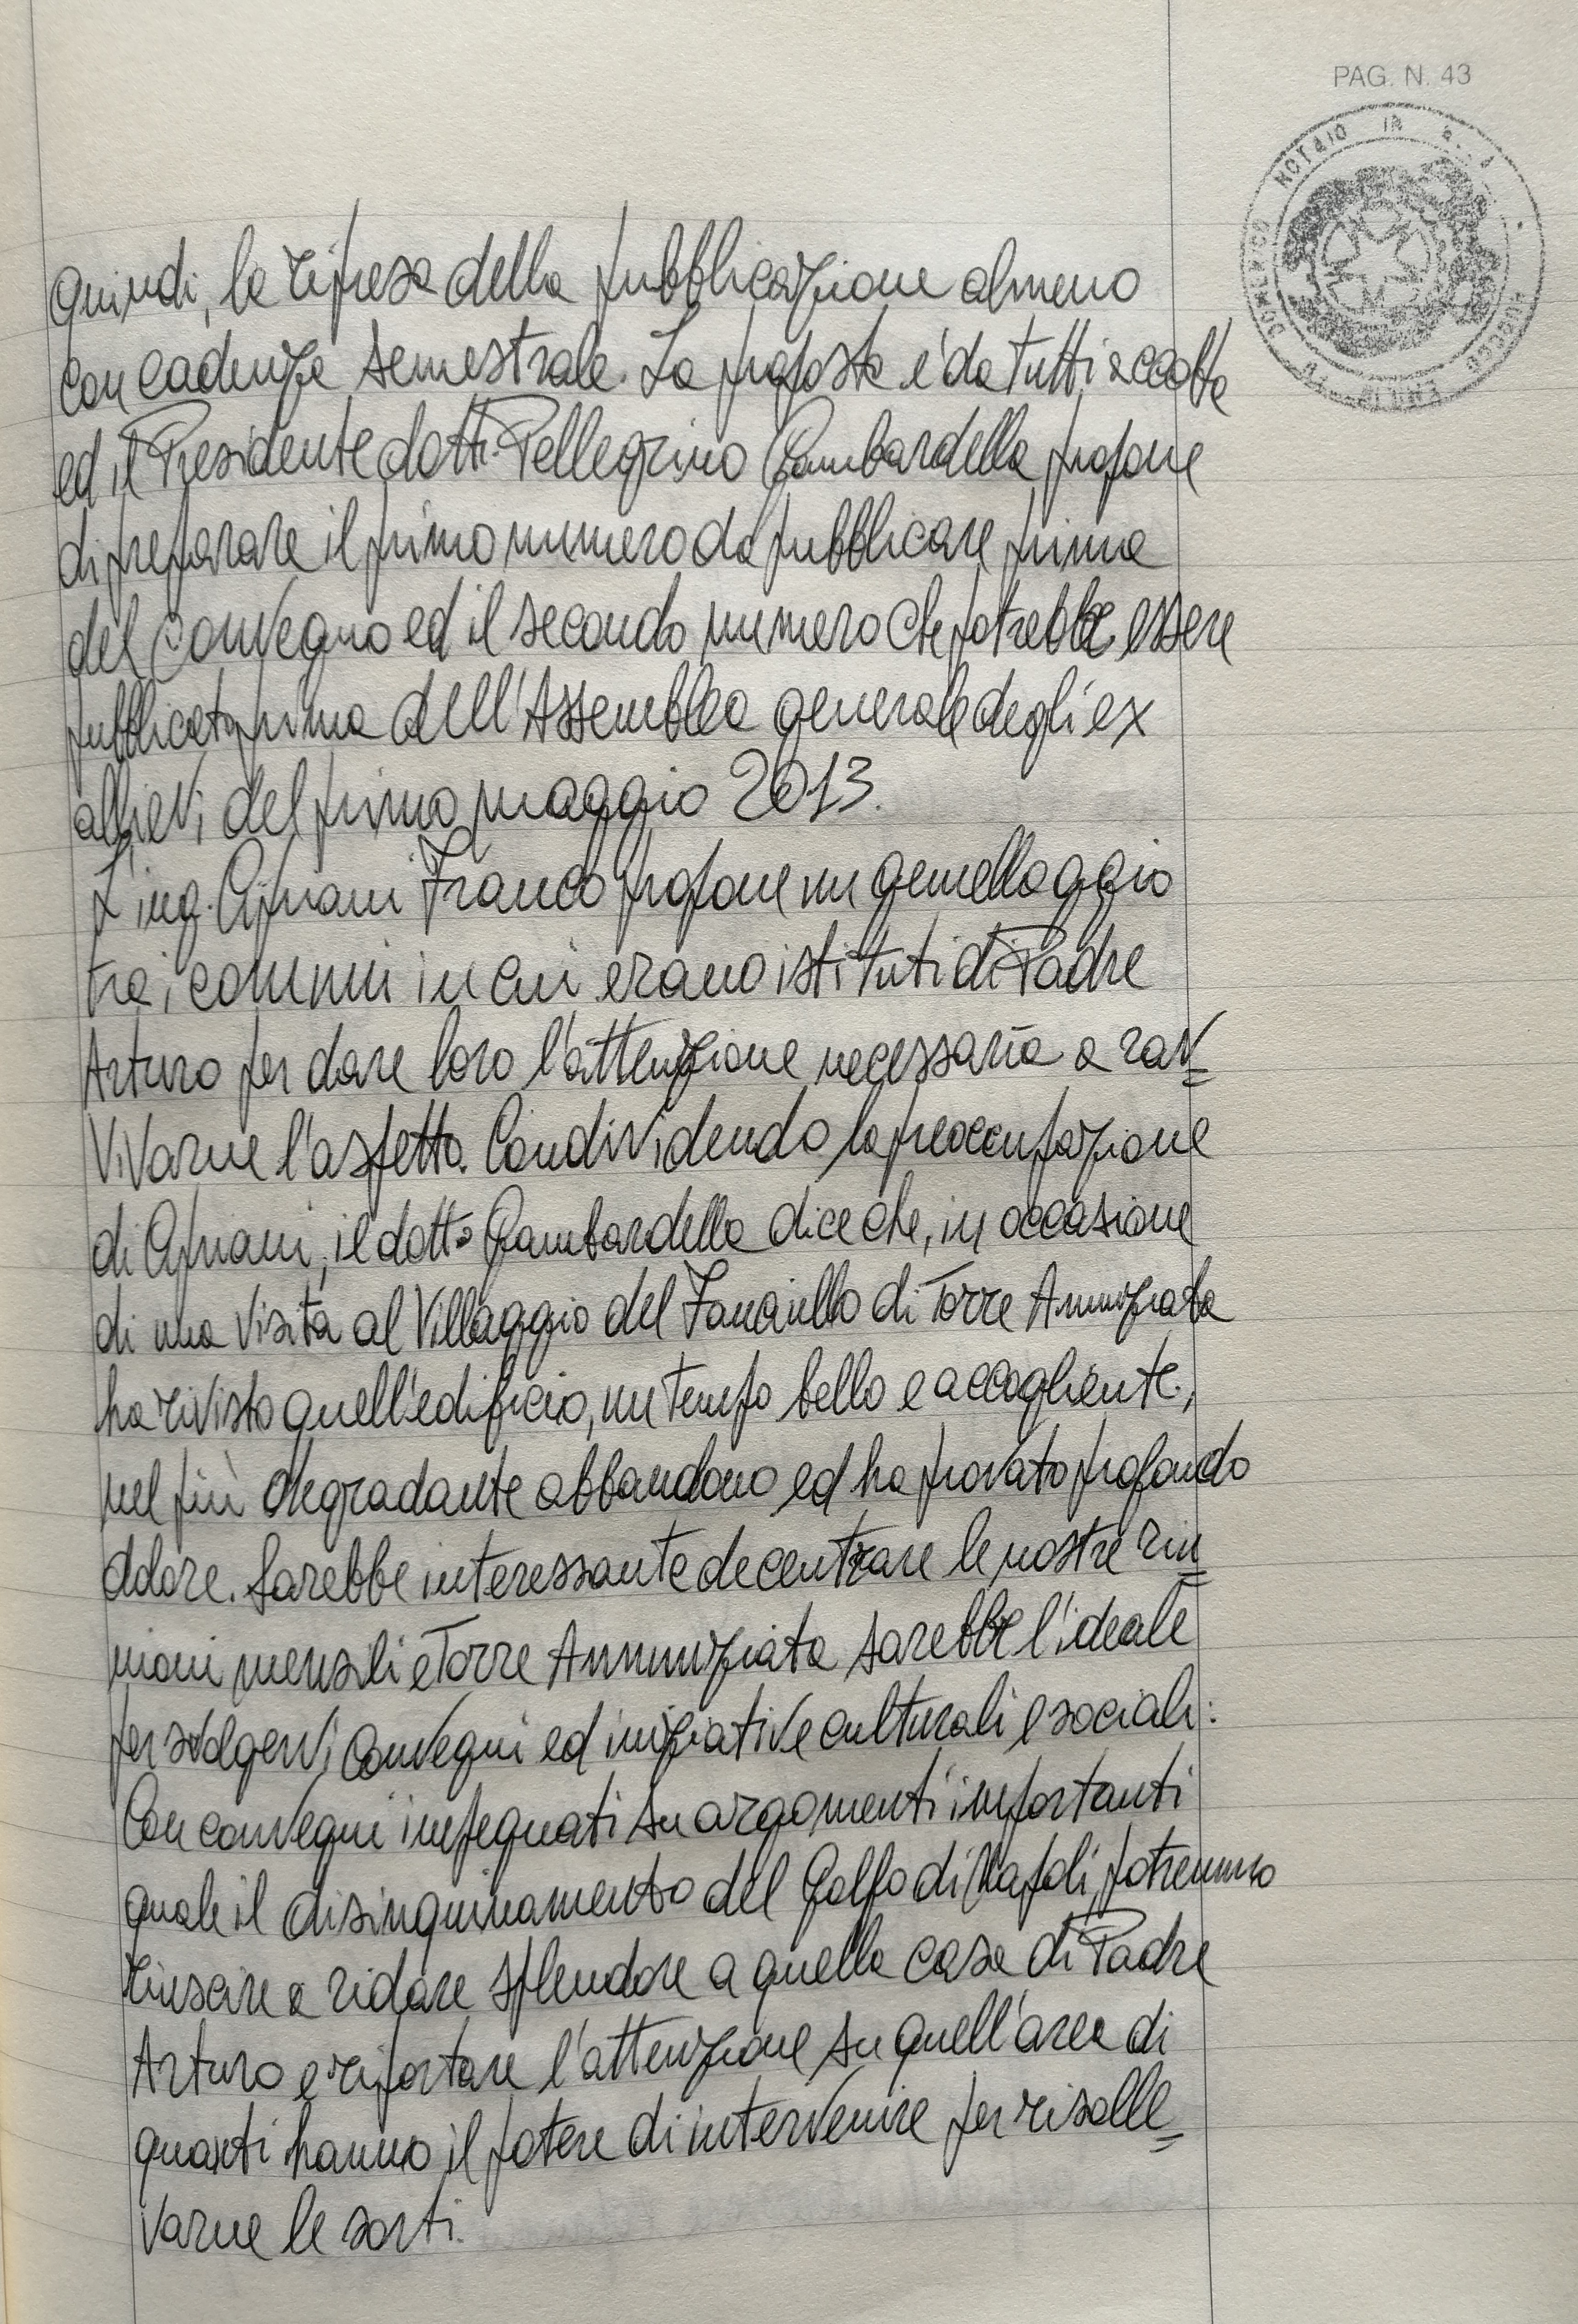 PAG. N. 43
NOTAIO IN
DOMENICO
quindi, la ripresa della pubblicazione almeno
con cadenza semestrale. La proposta è da tutti accolta
ed il Presidente dott. Pellegrino Gambardella propone
di preparare il primo numero da pubblicare prima
del convegno ed il secondo numero che potrebbe essere
pubblicato prima dell'Assemblea generale degli ex
allievi del primo maggio 2013.
L'ing. Cipriani Franco propone un gemellaggio
tra i comuni in cui erano istituti di Padre
Arturo per dare loro l'attenzione necessaria a rav=
vivarne l'aspetto. Condividendo la preoccupazione
di Cipriani, il dott. Gambardella dice che, in occasione
di una visita al Villaggio del Fanciullo di Torre Annunziata
ha rivisto quell'edificio, un tempo bello e accogliente,
nel più degradante abbandono ed ha provato profondo
dolore. Sarebbe interessante decentrare le nostre riu=
nioni mensili e Torre Annunziata sarebbe l'ideale
per svolgervi convegni ed iniziative culturali e sociali:
Con convegni impegnati su argomenti importanti
quale il disinquinamento del Golfo di Napoli, potremmo
riuscire a ridare splendore a quella casa di Padre
Arturo e riportare l'attenzione su quell'area di
quanti hanno il potere di intervenire per risolle=
varne le sorti.